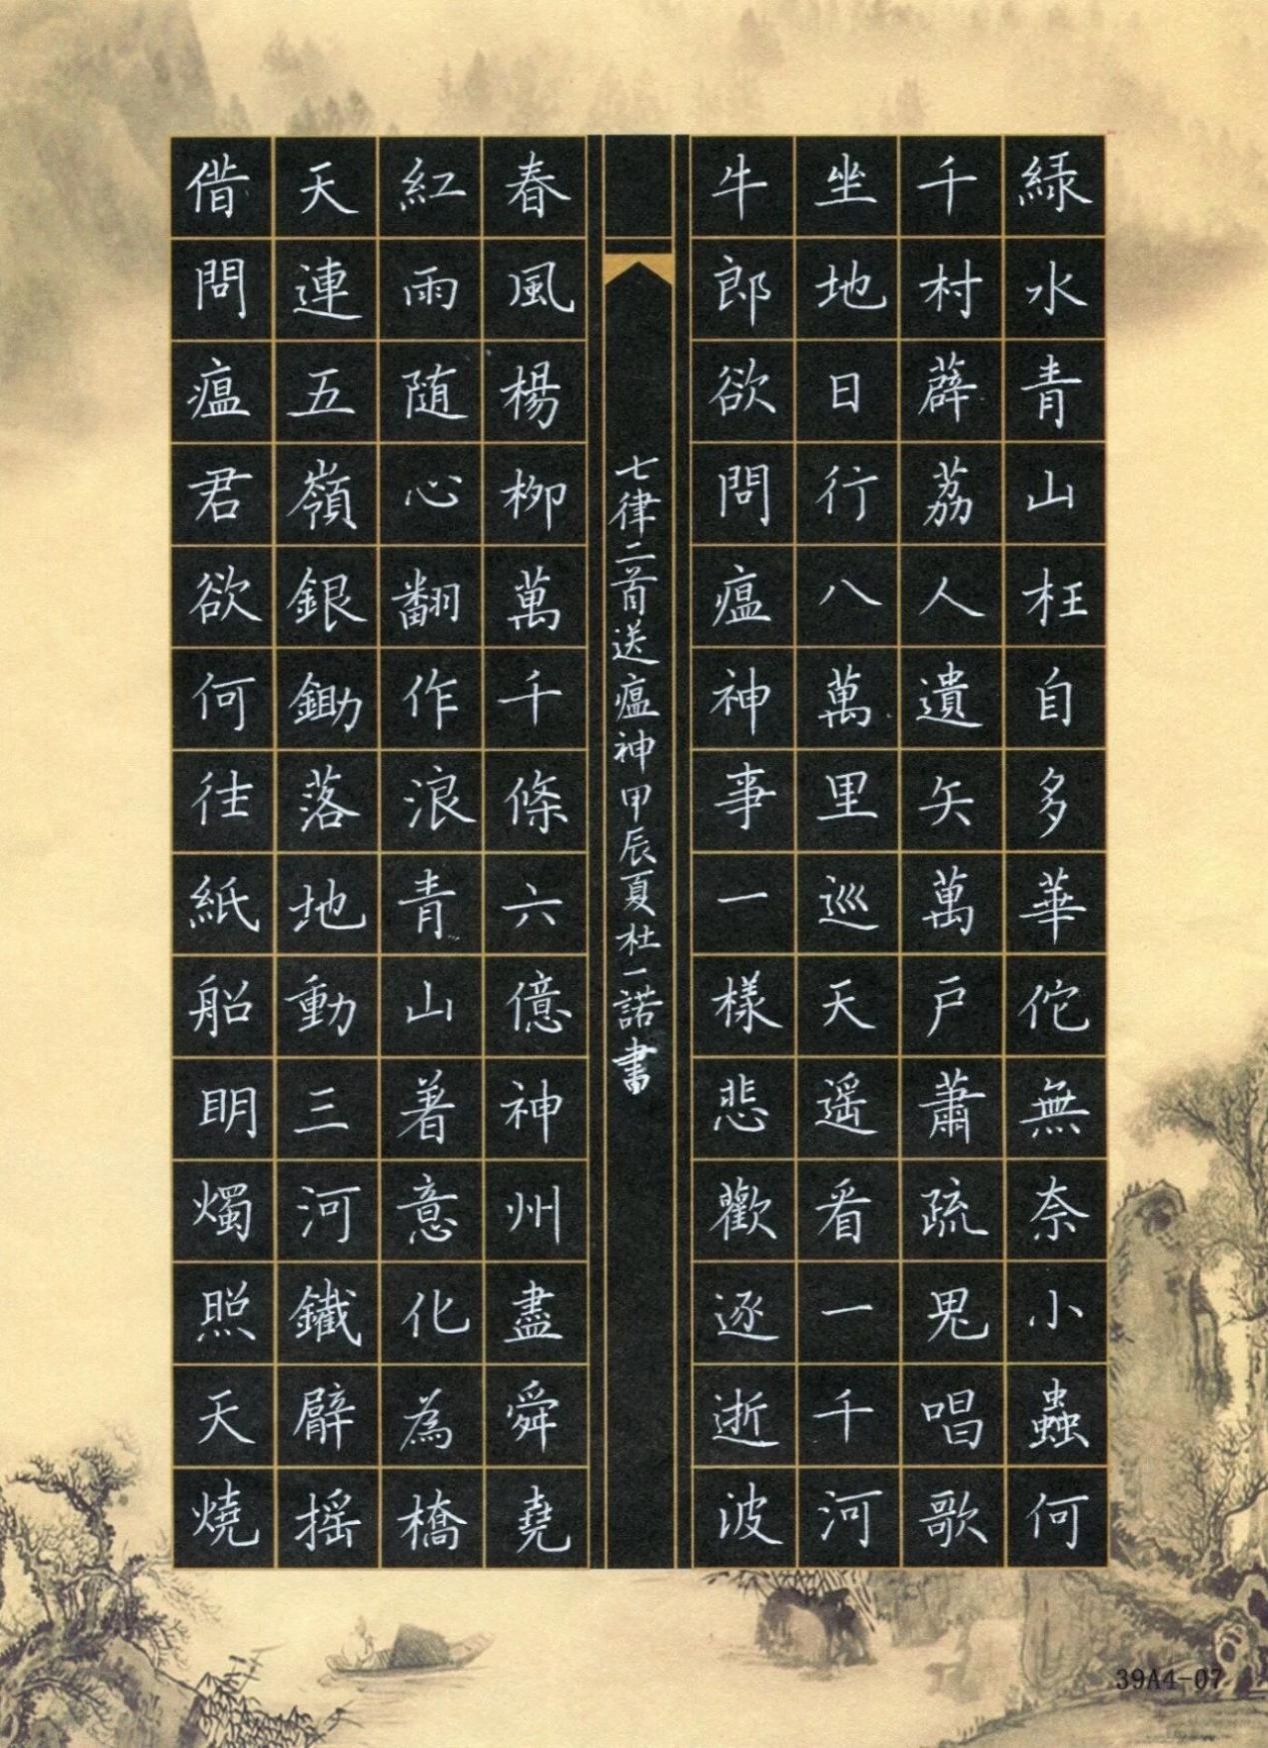 綠水青山枉自多華佗無奈小蟲何
千村薜荔人遺矢萬戶蕭疏鬼唱歌
坐地日行八萬里巡天遥看一千河
牛郎欲問瘟神事一樣悲歡逐逝波
七律二首送瘟神甲辰夏杜一諾書
春風楊柳萬千條六億神州盡舜堯
紅雨随心翻作浪青山着意化為橋
天連五嶺銀鋤落地動三河鐵臂摇
借問瘟君欲何往紙船明燭照天燒
39A4-07